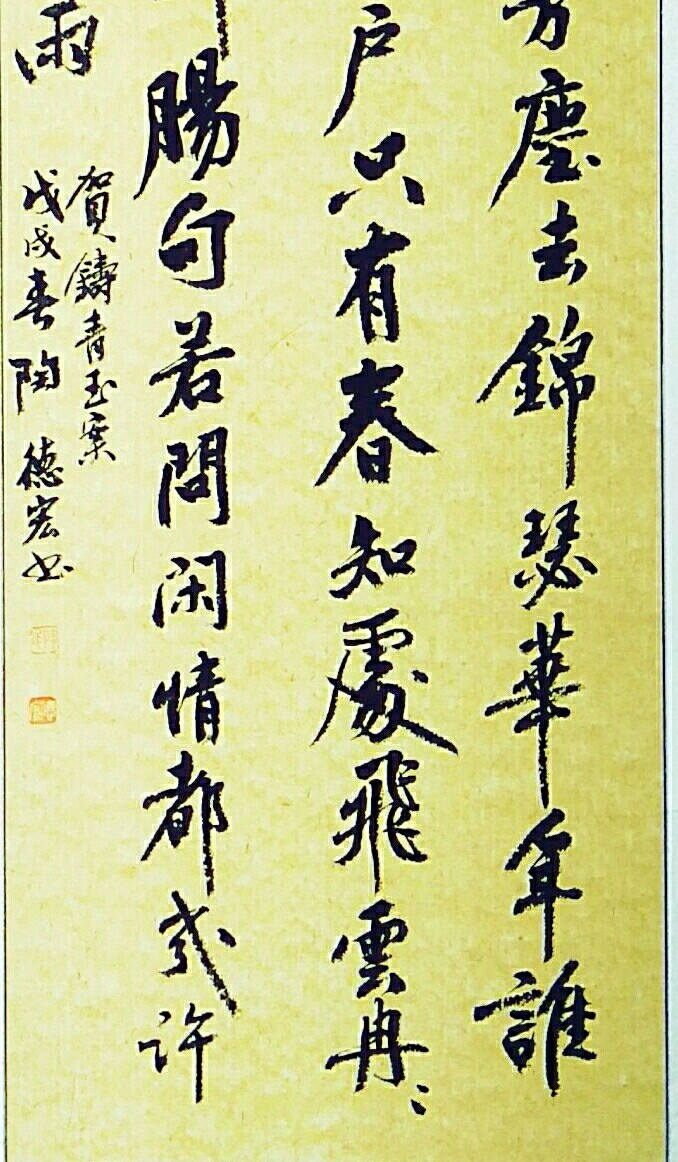 芳塵去錦瑟華年誰
戶只有春知處飛雲冉〻
腸句若問閑情都幾許
雨
賀鑄青玉案
戊戌春陶德宏书